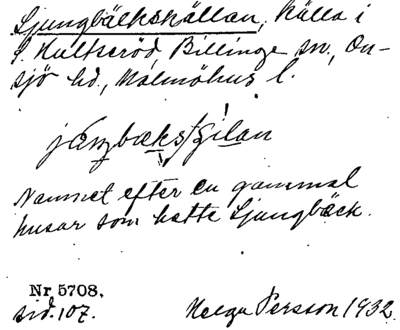 Ljungbäckskällan, källa i
S. Hultseröd Billinge sn., On-
sjö hd., Malmöhus l.
Namnet efter en gammal
husar som hette Ljungbäck.
Nr 5708,
sid. 107. Helge Persson 1932.